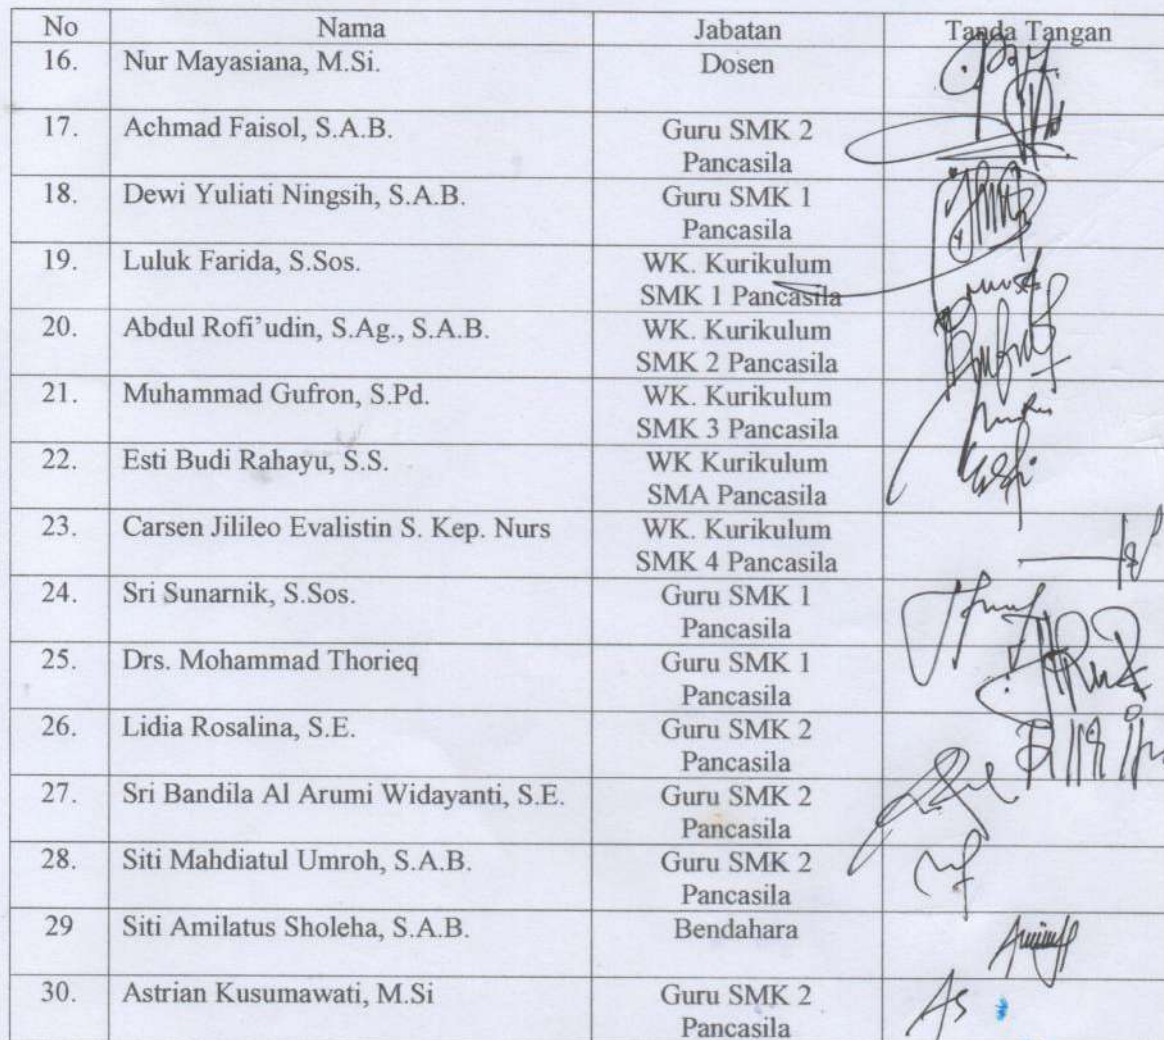 No Nama Jabatan Tanda Tangan
16. Nur Mayasiana, M.Si. Dosen
17. Achmad Faisol, S.A.B. Guru SMK 2
Pancasila
18. Dewi Yuliati Ningsih, S.A.B. Guru SMK 1
Pancasila
19. Luluk Farida, S.Sos. WK. Kurikulum
SMK 1 Pancasila
20. Abdul Rofi’udin, S.Ag., S.A.B. WK. Kurikulum
SMK 2 Pancasila
21. Muhammad Gufron, S.Pd. WK. Kurikulum
SMK 3 Pancasila
22. Esti Budi Rahayu, S.S. WK Kurikulum
SMA Pancasila
23. Carsen Jilileo Evalistin S. Kep. Nurs WK. Kurikulum
SMK 4 Pancasila
24. Sri Sunarnik, S.Sos. Guru SMK 1
Pancasila
25. Drs. Mohammad Thorieq Guru SMK 1
Pancasila
26. Lidia Rosalina, S.E. Guru SMK 2
Pancasila
27. Sri Bandila Al Arumi Widayanti, S.E. Guru SMK 2
Pancasila
28. Siti Mahdiatul Umroh, S.A.B. Guru SMK 2
Pancasila
29 Siti Amilatus Sholeha, S.A.B. Bendahara
30. Astrian Kusumawati, M.Si Guru SMK 2
Pancasila